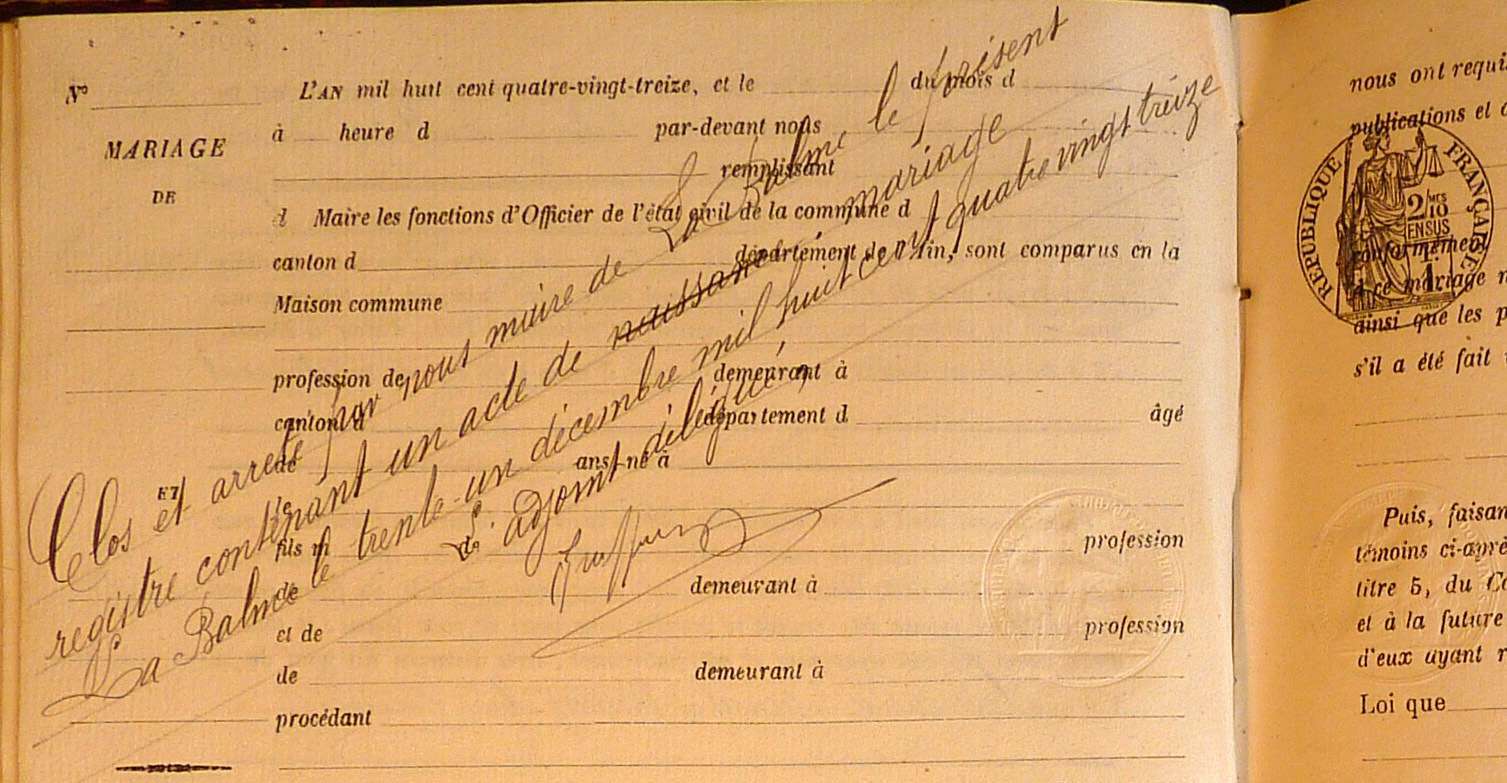 N° L'AN mil huit cent quatre-vingt-treize, et le du mois d
à heure d par-devant nous
MARIAGE
remplissant
DE
d Maire les fonctions d'Officier de l'état civil de la commune d
canton d département de l'Ain, sont comparus en la
Maison commune
profession de demeurant à
canton d département d âgé
de ans, né à
ET
le
fils m de profession
de demeurant à
et de profession
de demeurant à
procédant
Clos et arrete par nous maire de La Balme le présent
registre contenant un acte de naissance mariage
La Balme le trente-un décembre mil huit cent quatre vingt treize
L'adjoint délégué,
nous ont requis
publications et
RÉPUBLIQUE FRANÇAISE
2/10 MES
EN SUS
conformément
ce mariage
ainsi que les p
s'il a été fait
Puis, faisan
témoins ci-apré
titre 5, du Co
et à la future
d'eux ayant r
Loi que